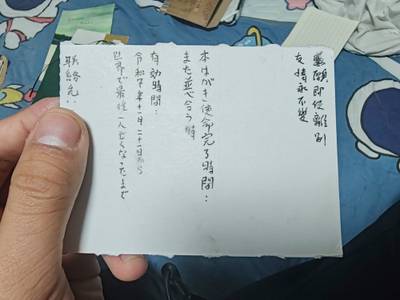 願即使離別
永不變
本はがき使命完了時間：
また並べ合う時
有効時間：
令和7年1月二十一日から
世界で最後一人亡くなったまで
联絡先：